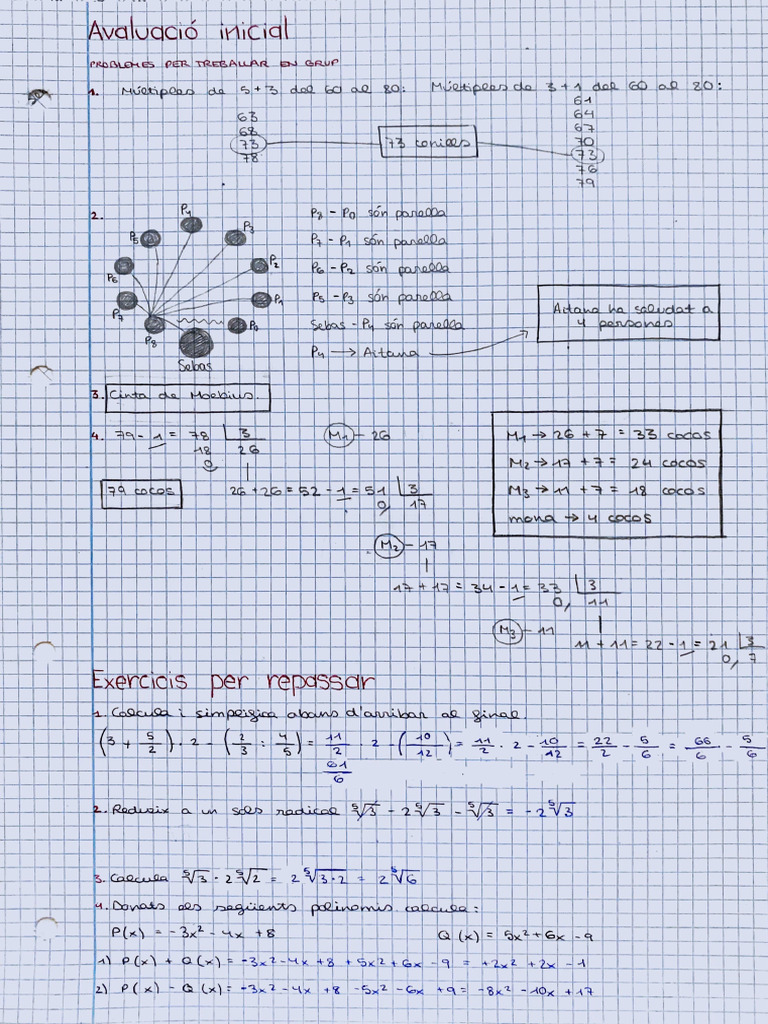 Avaluació inicial
PROBLEMES PER TREBALLAR EN GRUP
1. Múltiples de 5+3 del 60 al 80: Múltiples de 3+1 del 60 al 80:
63
68
73
78
73 conills
61
64
67
70
73
76
79
2.
P4
P5
P3
P6
P2
P7
P1
P8
P0
Sebas
P8 - P0 són parella
P7 - P1 són parella
P6 - P2 són parella
P5 - P3 són parella
Sebas - P4 són parella
P4 → Aitana
Aitana ha saludat a
4 persones
3. Cinta de Moebius.
4. 79 - 1 = 78 | 3
18 26
0
79 cocos
M1 - 26
26 + 26 = 52 - 1 = 51 | 3
0, 17
M2 - 17
17 + 17 = 34 - 1 = 33 | 3
0, 11
M3 - 11
11 + 11 = 22 - 1 = 21 | 3
0, 7
M1 → 26 + 7 = 33 cocos
M2 → 17 + 7 = 24 cocos
M3 → 11 + 7 = 18 cocos
mona → 4 cocos
Exercicis per repassar
1. Calcula i simplifica abans d'arribar al final.
(3 + 5/2) · 2 - (2/3 : 4/5) = 11/2 · 2 - (10/12) = 11/2 · 2 - 10/12 = 22/2 - 5/6 = 66/6 - 5/6
61/6
2. Redueix a un sols radical ⁵√3 - 2⁵√3 - ⁵√3 = -2⁵√3
3. Calcula ⁵√3 · 2⁵√2 = 2⁵√3·2 = 2⁵√6
4. Donats els següents polinomis calcula:
P(x) = -3x² - 4x + 8 Q(x) = 5x² + 6x - 9
1) P(x) + Q(x) = -3x² - 4x + 8 + 5x² + 6x - 9 = +2x² + 2x - 1
2) P(x) - Q(x) = -3x² - 4x + 8 - 5x² - 6x + 9 = -8x² - 10x + 17